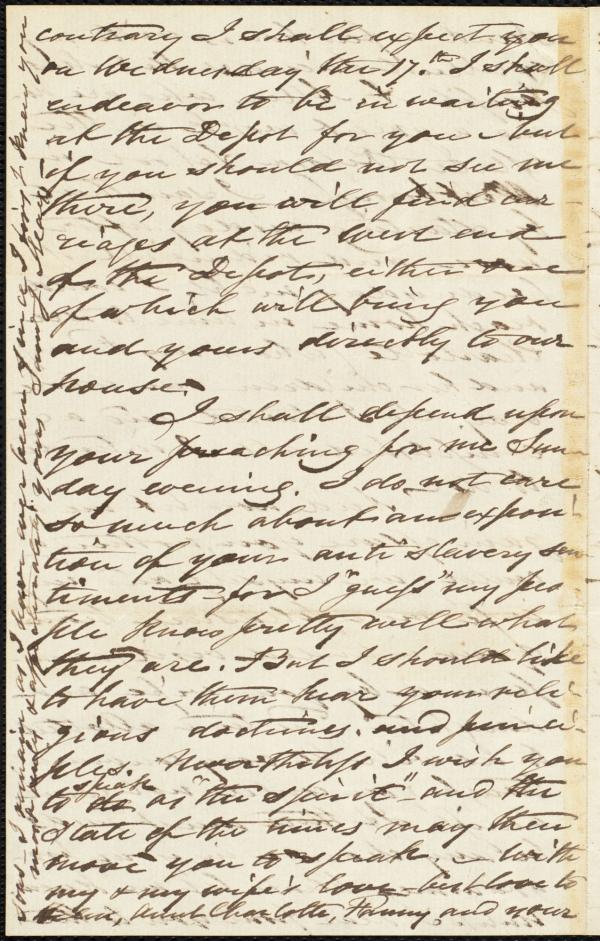 contrary I shall expect you
on Wednesday the 17.th I shall
endeavor to be in waiting
at the Depot for you – but
if you should not see me
there, you will find car-
riages at the west end
of the Depots, either one
of which will bring you
and yours directly to our
house.
I shall depend upon
your preaching for me Sun-
day evening. I do not care
so much about an exposi-
tion of your anti slavery sen
timents – for I "guess" my peo
ple know pretty well what
they are. But I should like
to have them hear your reli-
gious doctrines. and princi-
ples. Nevertheless I wish you
to speak as "the spirit" – and the
state of the times may then
move you to speak. – With
my & my wife's love – best love to
Helen, Aunt Charlotte, Fanny, and your
sons – I remain as I have ever been since I first knew you
most truly & affectionately yours